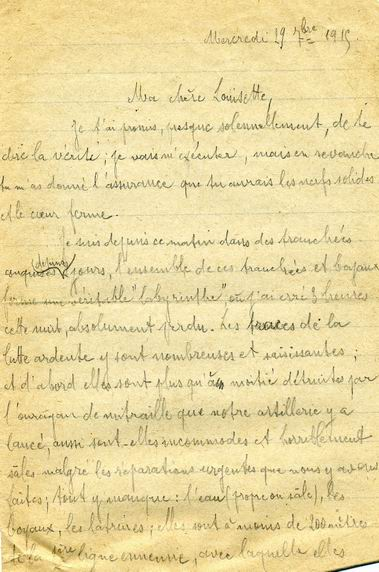 Mercredi 29 7bre 1915
Ma chère Louisette,
Je t'ai promis, presque solennellement, de te
dire la vérité ; je vais m'exécuter, mais en revanche
tu m'as donné l'assurance que tu aurais les nerfs solides
et le cœur ferme.
Je suis depuis ce matin dans des tranchées
conquises depuis jours, l'ensemble de ces tranchées et boyaux
forme un véritable "labyrinthe" où j'ai erré 3 heures
cette nuit, absolument perdu. Les traces de la
lutte ardente y sont nombreuses et saisissantes ;
et d'abord elles sont plus qu'à moitié détruites par
l'ouragan de mitraille que notre artillerie y a
lancé, aussi sont-elles incommodes et horriblement
sales malgré les réparations urgentes que nous y avons
faites ; tout y manque : l'eau (propre ou sale), les
boyaux, les latrines ; elles sont à moins de 200 mètres
de la 1ère ligne ennemie, avec laquelle elles